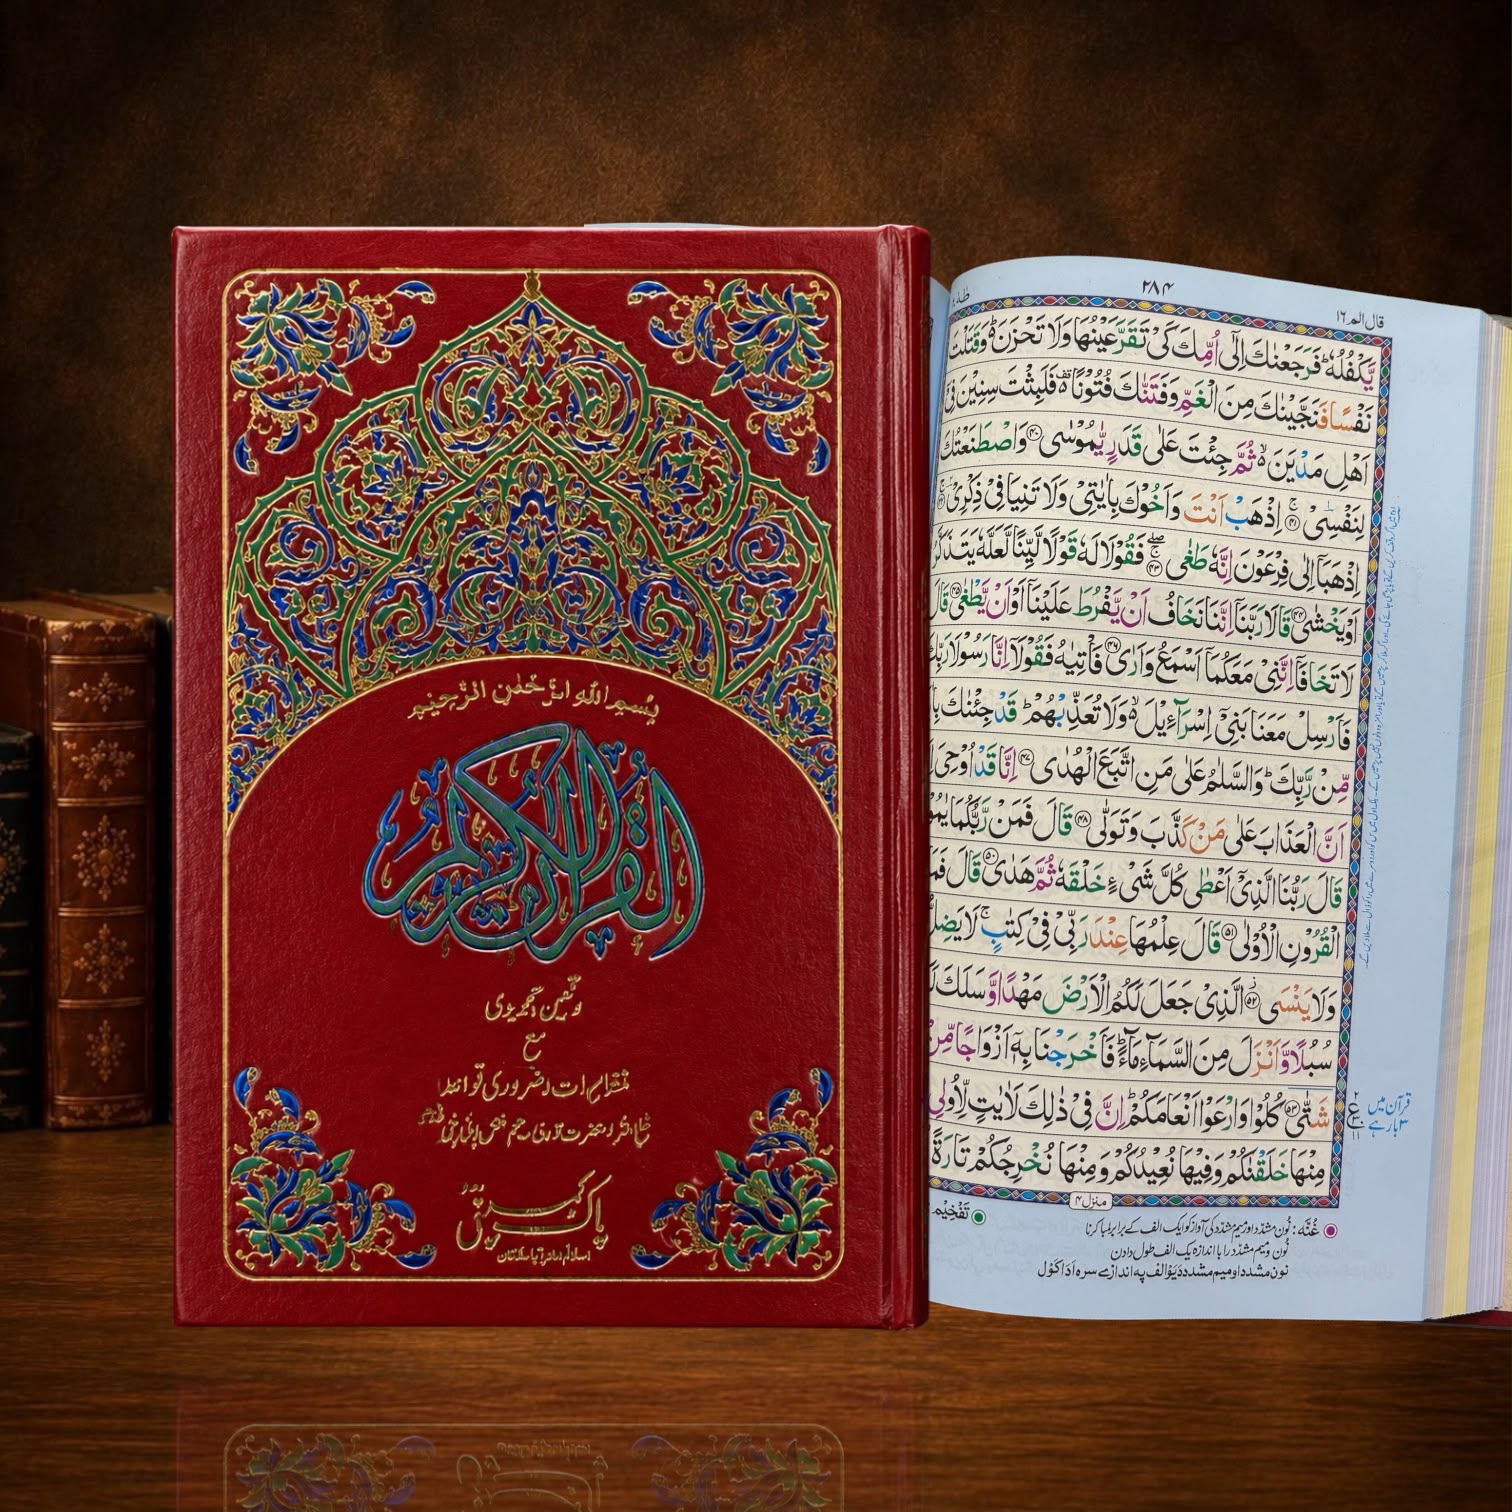 بسم الله الرحمن الرحيم
القرآن الكريم
مع
پاک
طٰهٰ
۲۸۴
قال الم ۱۶
يَّكْفُلُهٗ ؕ فَرَجَعْنٰكَ اِلٰٓى اُمِّكَ كَىْ تَقَرَّ عَيْنُهَا وَلَا تَحْزَنَ ؕ وَقَتَلْتَ
نَفْسًا فَنَجَّيْنٰكَ مِنَ الْغَمِّ وَفَتَنّٰكَ فُتُوْنًا ۟ فَلَبِثْتَ سِنِيْنَ فِىْ
اَهْلِ مَدْيَنَ ۙ ثُمَّ جِئْتَ عَلٰى قَدَرٍ يّٰمُوْسٰى ﴿۴۰﴾ وَاصْطَنَعْتُكَ
لِنَفْسِىْ ﴿۴۱﴾ اِذْهَبْ اَنْتَ وَاَخُوْكَ بِاٰيٰتِىْ وَلَا تَنِيَا فِىْ ذِكْرِىْ
اِذْهَبَاۤ اِلٰى فِرْعَوْنَ اِنَّهٗ طَغٰى ﴿۴۳﴾ فَقُوْلَا لَهٗ قَوْلًا لَّيِّنًا لَّعَلَّهٗ يَتَذَكَّرُ
اَوْ يَخْشٰى ﴿۴۴﴾ قَالَا رَبَّنَاۤ اِنَّنَا نَخَافُ اَنْ يَّفْرُطَ عَلَيْنَاۤ اَوْ اَنْ يَّطْغٰى ﴿۴۵﴾ قَالَ
لَا تَخَافَاۤ اِنَّنِىْ مَعَكُمَاۤ اَسْمَعُ وَاَرٰى ﴿۴۶﴾ فَاْتِيٰهُ فَقُوْلَاۤ اِنَّا رَسُوْلَا رَبِّكَ
فَاَرْسِلْ مَعَنَا بَنِىْۤ اِسْرَآءِيْلَ ۙ وَلَا تُعَذِّبْهُمْ ؕ قَدْ جِئْنٰكَ
مِّنْ رَّبِّكَ ؕ وَالسَّلٰمُ عَلٰى مَنِ اتَّبَعَ الْهُدٰى ﴿۴۷﴾ اِنَّا قَدْ اُوْحِىَ
اَنَّ الْعَذَابَ عَلٰى مَنْ كَذَّبَ وَتَوَلّٰى ﴿۴۸﴾ قَالَ فَمَنْ رَّبُّكُمَا
قَالَ رَبُّنَا الَّذِىْۤ اَعْطٰى كُلَّ شَىْءٍ خَلْقَهٗ ثُمَّ هَدٰى ﴿۵۰﴾ قَالَ
الْقُرُوْنِ الْاُوْلٰى ﴿۵۱﴾ قَالَ عِلْمُهَا عِنْدَ رَبِّىْ فِىْ كِتٰبٍ ۚ لَا يَضِلُّ
وَلَا يَنْسَى ﴿۵۲﴾ الَّذِىْ جَعَلَ لَكُمُ الْاَرْضَ مَهْدًا وَّسَلَكَ
سُبُلًا وَّاَنْزَلَ مِنَ السَّمَآءِ مَآءً ؕ فَاَخْرَجْنَا بِهٖۤ اَزْوَاجًا مِّنْ
شَتّٰى ﴿۵۳﴾ كُلُوْا وَارْعَوْا اَنْعَامَكُمْ ؕ اِنَّ فِىْ ذٰلِكَ لَاٰيٰتٍ لِّاُولِى
مِنْهَا خَلَقْنٰكُمْ وَفِيْهَا نُعِيْدُكُمْ وَمِنْهَا نُخْرِجُكُمْ تَارَةً
ع
قرآن میں
۳ بار ہے
منزل ۴
غُنَّه: نون مشدد اور میم مشدد کی آواز کو ایک الف کے برابر لمبا کرنا
تَفْخِيْم
نون و میم مشدد را به اندازه یک الف طول دادن
نون مشدد او میم مشدد د یو الف په اندازے سره اداکول